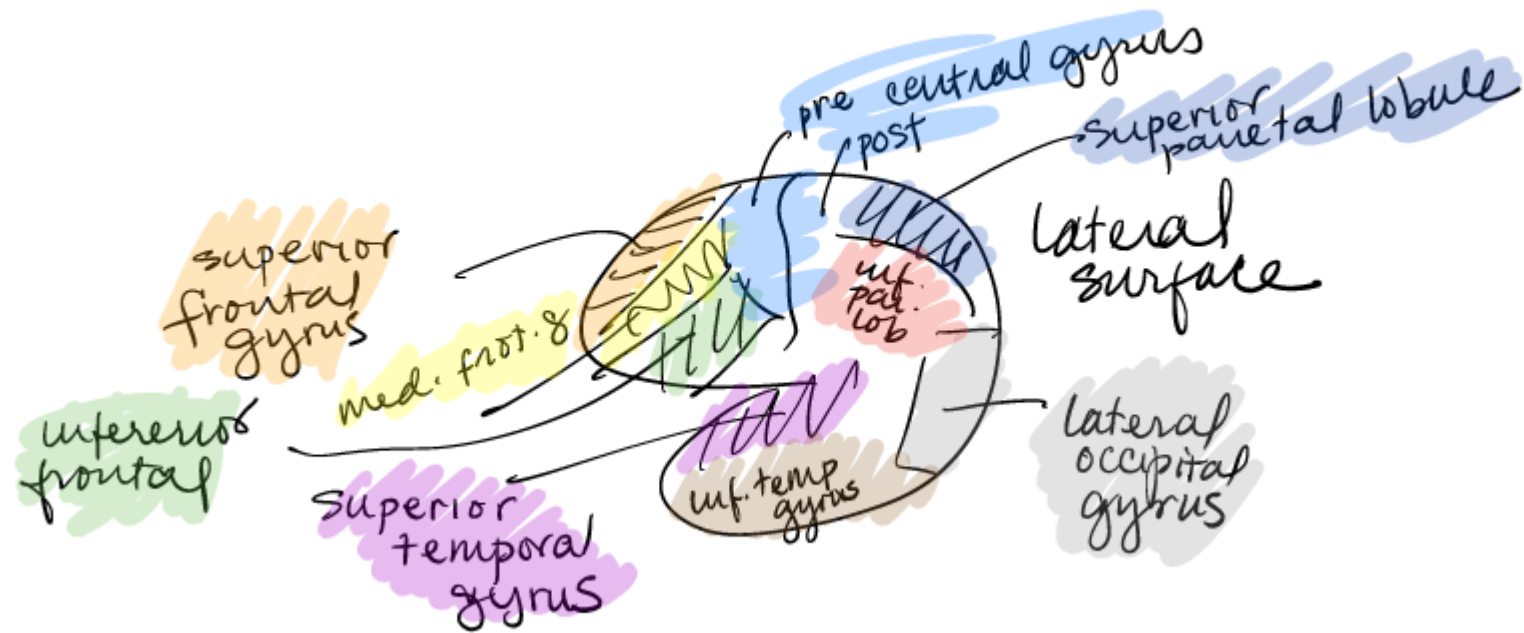 pre central gyrus
post
superior
parietal lobule
lateral
surface
superior
frontal
gyrus
med. frot. g
inf.
par.
lob
infererior
frontal
superior
temporal
gyrus
inf. temp
gyrus
lateral
occipital
gyrus